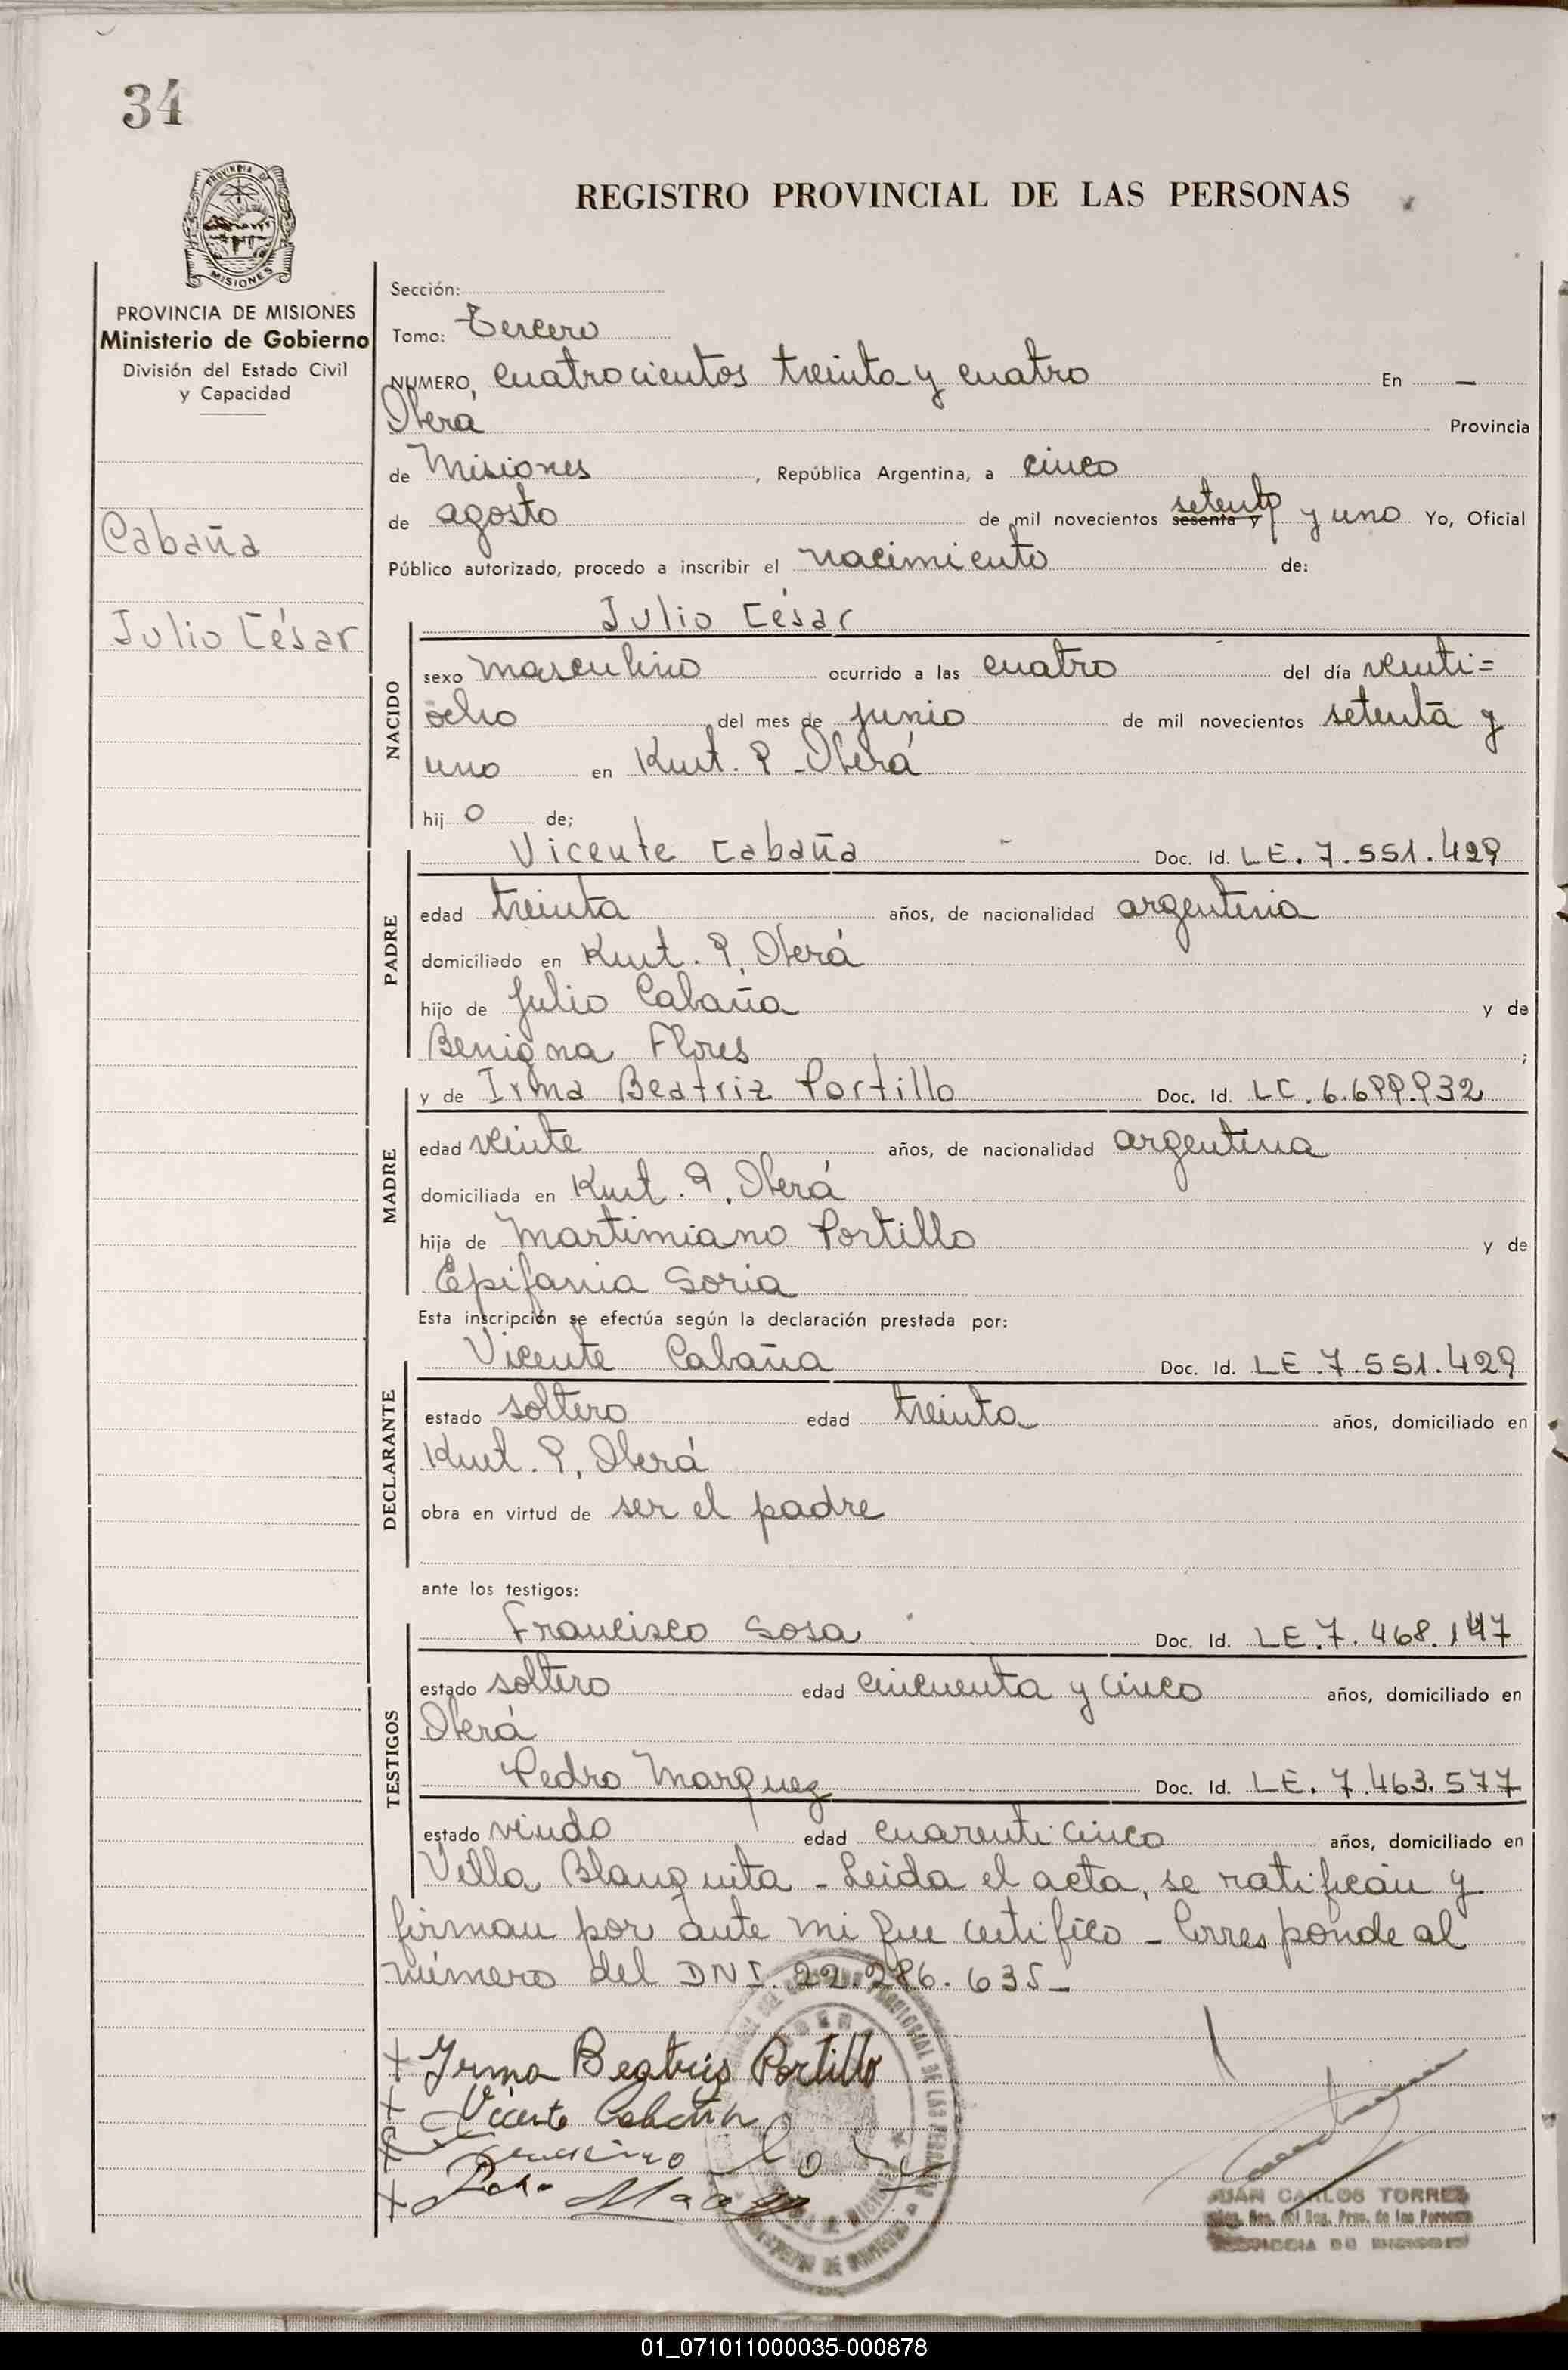 34
PROVINCIA DE
MISIONES
PROVINCIA DE MISIONES
Ministerio de Gobierno
División del Estado Civil
y Capacidad
Cabaña
Julio César
REGISTRO PROVINCIAL DE LAS PERSONAS
Sección:
Tomo: Tercero
NUMERO, cuatrocientos treinta y cuatro En —
Oberá Provincia
de Misiones, República Argentina, a cinco
de agosto de mil novecientos sesenta y setenta y uno Yo, Oficial
Público autorizado, procedo a inscribir el nacimiento de:
Julio César
NACIDO
sexo masculino ocurrido a las cuatro del día veinti=
ocho del mes de junio de mil novecientos setenta y
uno en Kmt. 9 - Oberá
hijo de;
Vicente Cabaña Doc. Id. LE. 7.551.429
PADRE
edad treinta años, de nacionalidad argentina
domiciliado en Kmt. 9, Oberá
hijo de Julio Cabaña y de
Benigna Flores ;
y de Irma Beatriz Portillo Doc. Id. LC. 6.699.932
MADRE
edad veinte años, de nacionalidad argentina
domiciliada en Kmt. 9, Oberá
hija de Martimiano Portillo y de
Epifania Soria
Esta inscripción se efectúa según la declaración prestada por:
Vicente Cabaña Doc. Id. LE. 7.551.429
DECLARANTE
estado soltero edad treinta años, domiciliado en
Kmt. 9, Oberá
obra en virtud de ser el padre
ante los testigos:
Francisco Sosa Doc. Id. LE. 7.468.147
TESTIGOS
estado soltero edad cincuenta y cinco años, domiciliado en
Oberá
Pedro Marquez Doc. Id. LE. 7.463.577
estado viudo edad cuarenticinco años, domiciliado en
Villa Blanquita - Leida el acta, se ratifican y
firman por ante mi que certifico - Corresponde al
número del DNI. 22.286.635-
+ Yrma Beatris Portillo
+ Vicente Cabaña
JUAN CARLOS TORRES
01_071011000035-000878